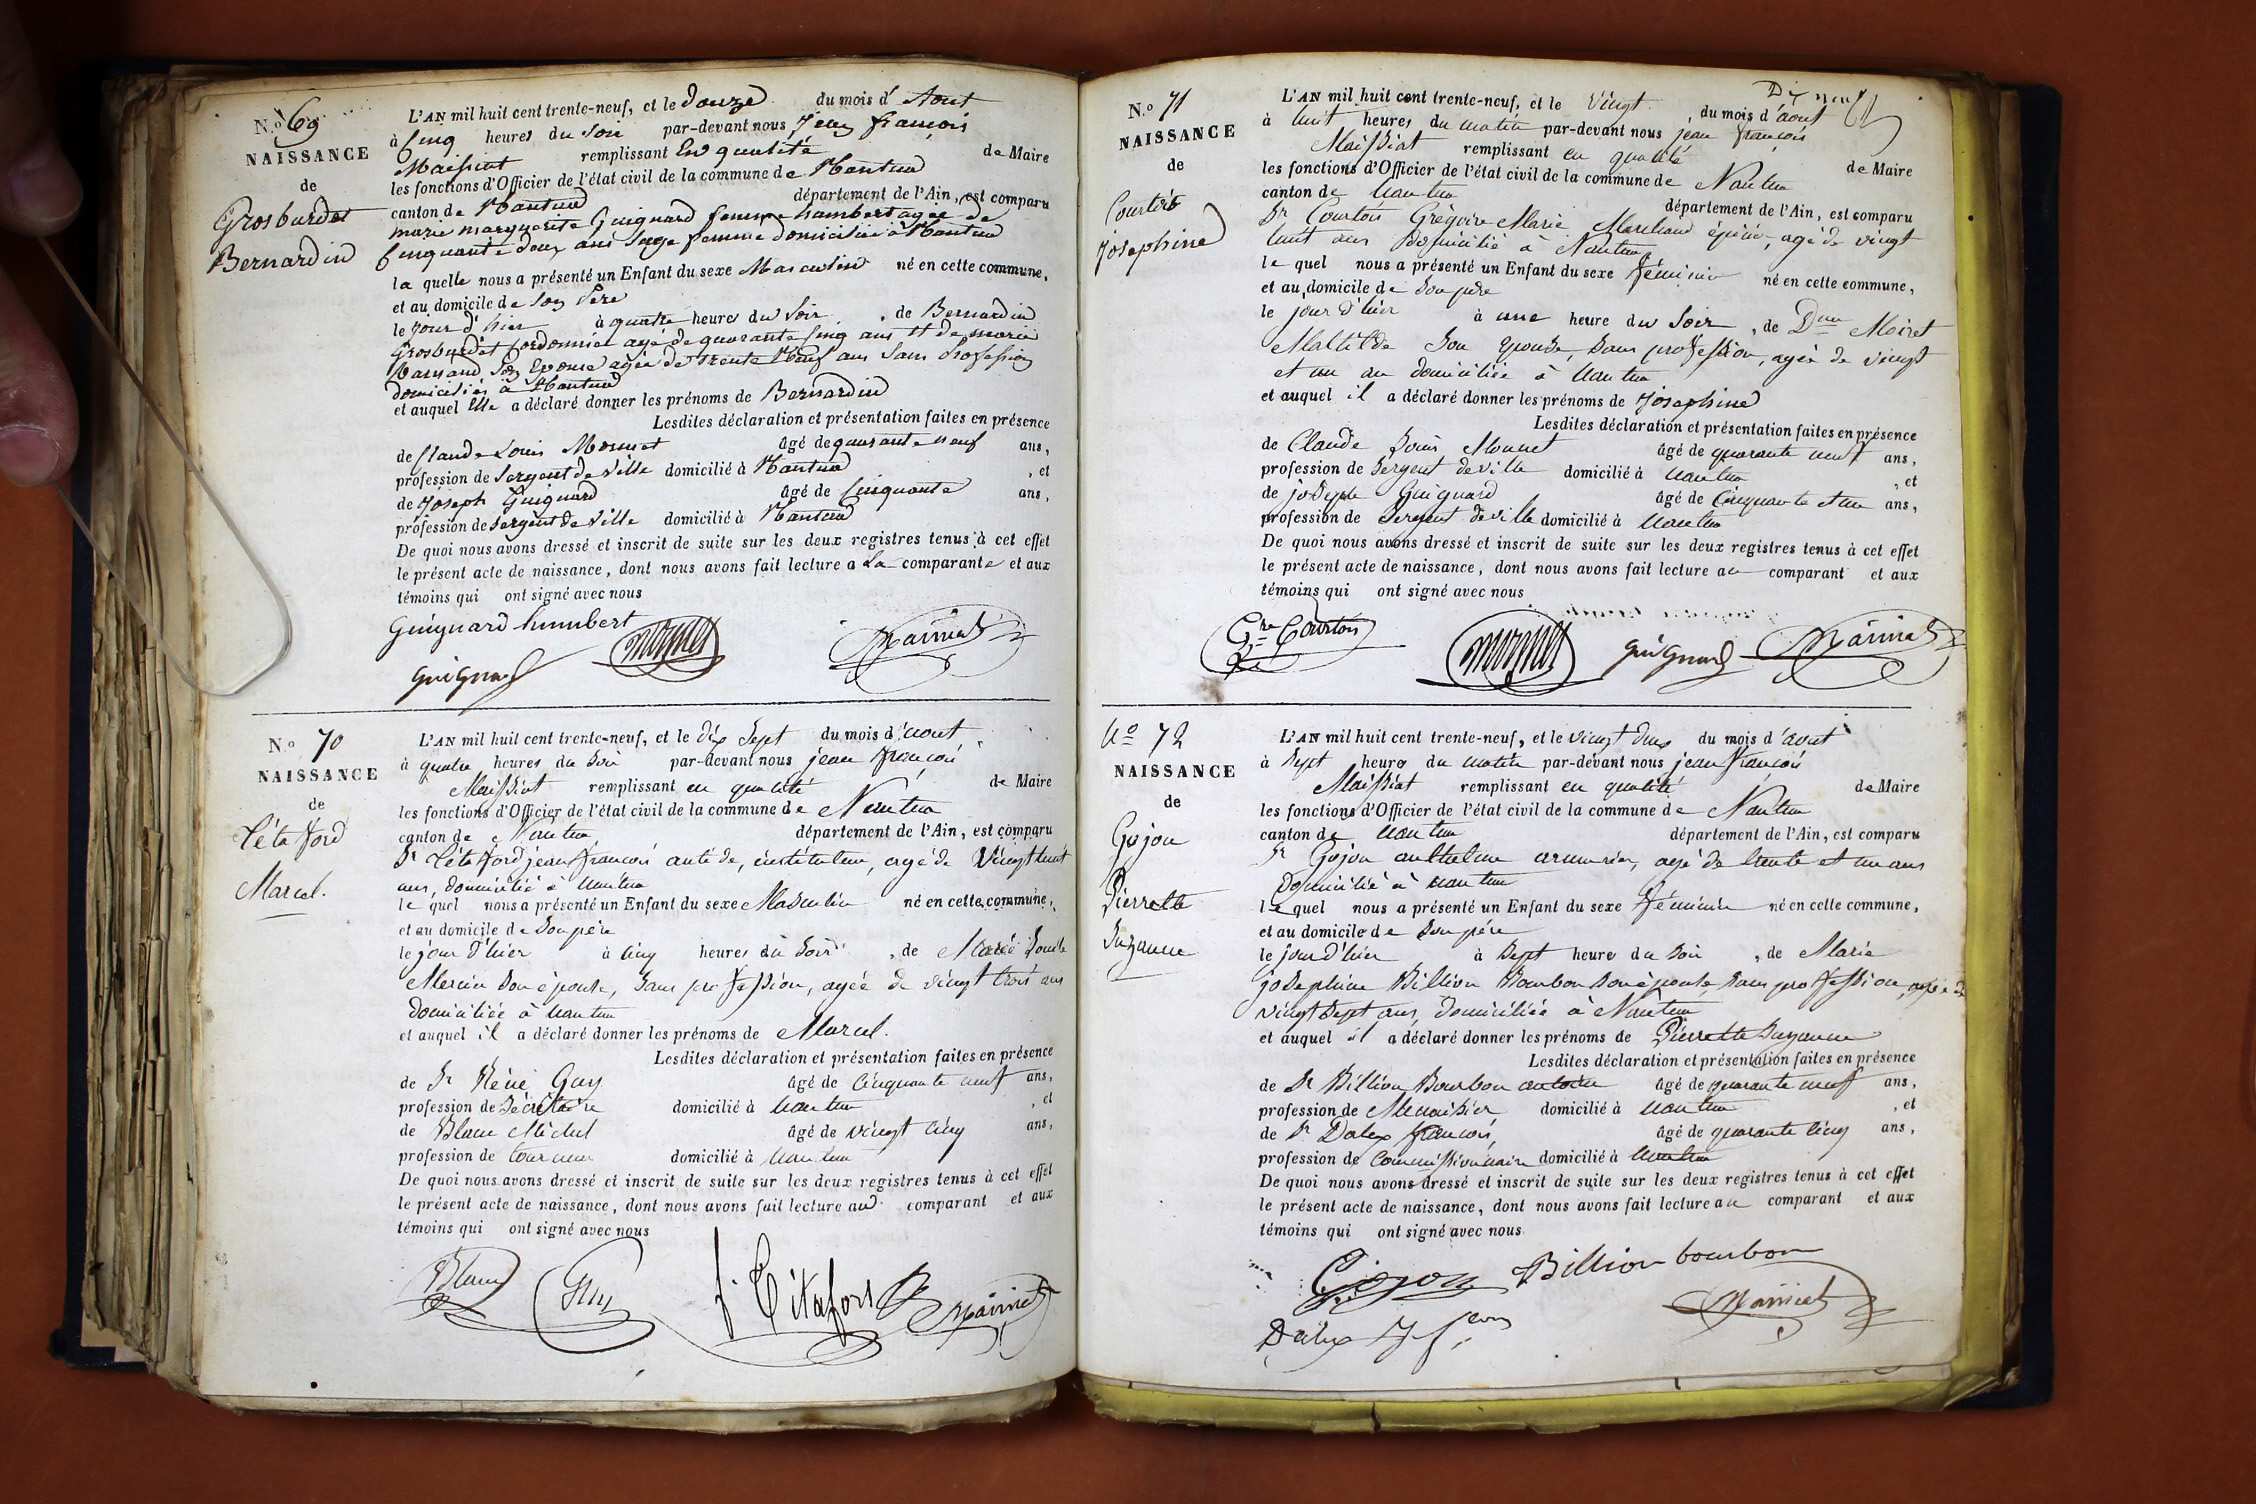 N.o 69
NAISSANCE
de
Grosburdet
Bernardin
L'AN mil huit cent trente-neuf, et le douze du mois d' Aout
à Cinq heures du Soir par-devant nous Jean françois
Maissiat remplissant En qualité de Maire
les fonctions d'Officier de l'état civil de la commune de Nantua
canton de Nantua département de l'Ain, est comparu
marie marguerite Guignard femme humbert agee de
Cinquante deux ans Sage femme domiciliée à Nantua
la quelle nous a présenté un Enfant du sexe Masculin né en cette commune,
et au domicile de Son Père
le jour d'hier à quatre heures du Soir, de Bernardin
Grosburdet Cordonnier agé de quarante Cinq ans et de marie
Son Epouse agée de trente Neuf ans Sans Profession
domiciliés à Nantua
et auquel Elle a déclaré donner les prénoms de Bernardin
Lesdites déclaration et présentation faites en présence
de Claude Louis Monnet âgé de quarante neuf ans,
profession de Sergent de Ville domicilié à Nantua, et
de Joseph Guignard âgé de Cinquante ans,
profession de Sergent de Ville domicilié à Nantua
De quoi nous avons dressé et inscrit de suite sur les deux registres tenus à cet effet
le présent acte de naissance, dont nous avons fait lecture a La comparante et aux
témoins qui ont signé avec nous
Guignard humbert
monnet
Maissiat
Guignard
N.o 70
NAISSANCE
de
Marcel.
L'AN mil huit cent trente-neuf, et le dix Sept du mois d'aout
à quatre heures du Soir par-devant nous jean françois
Maissiat remplissant en qualité de Maire
les fonctions d'Officier de l'état civil de la commune de Nantua
canton de Nantua département de l'Ain, est comparu
Sr jean françois instituteur, agé de vingt huit
ans, domicilié à Nantua
le quel nous a présenté un Enfant du sexe Masculin né en cette commune,
et au domicile de Son père
le jour d'hier à cinq heures du Soir, de Marie
Mercier Son épouse, Sans profession, agée de vingt trois ans
domiciliée à Nantua
et auquel il a déclaré donner les prénoms de Marcel.
Lesdites déclaration et présentation faites en présence
de Sr Réné Guy âgé de Cinquante neuf ans,
profession de Sécrétaire domicilié à Nantua, et
de Blanc Michel âgé de vingt cinq ans,
profession de tourneur domicilié à Nantua
De quoi nous avons dressé et inscrit de suite sur les deux registres tenus à cet effet
le présent acte de naissance, dont nous avons fait lecture au comparant et aux
témoins qui ont signé avec nous
Blanc
Guy
Maissiat
N.o 71
NAISSANCE
de
Courtois
Josephine
Dix neuf
L'AN mil huit cent trente-neuf, et le vingt, du mois d'aout
à huit heures du matin par-devant nous jean françois
Maissiat remplissant en qualité de Maire
les fonctions d'Officier de l'état civil de la commune de Nantua
canton de Nantua département de l'Ain, est comparu
Sr Courtois Grégoire Marie Marchand épicier, agé de vingt
huit ans Domicilié à Nantua
le quel nous a présenté un Enfant du sexe féminin né en cette commune,
et au domicile de Son père
le jour d'hier à une heure du Soir, de Dme Moiret
Mathilde Son épouse, Sans profession, agée de vingt
et un an domiciliée à Nantua
et auquel il a déclaré donner les prénoms de Josephine
Lesdites déclaration et présentation faites en présence
de Claude Louis Monnet âgé de quarante neuf ans,
profession de Sergent de ville domicilié à Nantua, et
de joseph Guignard âgé de Cinquante et un ans,
profession de Sergent de ville domicilié à Nantua
De quoi nous avons dressé et inscrit de suite sur les deux registres tenus à cet effet
le présent acte de naissance, dont nous avons fait lecture au comparant et aux
témoins qui ont signé avec nous
Gre Courtois
monnet
Guignard
Maissiat
No 72
NAISSANCE
de
Gojon
Pierrette
Suzanne
L'AN mil huit cent trente-neuf, et le vingt deux du mois d'aout
à Sept heure du matin par-devant nous jean françois
Maissiat remplissant en qualité de Maire
les fonctions d'Officier de l'état civil de la commune de Nantua
canton de Nantua département de l'Ain, est comparu
Sr Gojon anthelme armurier, agé de trente et un ans
Domicilié à Nantua
le quel nous a présenté un Enfant du sexe féminin né en cette commune,
et au domicile de Son père
le jour d'hier à Sept heure du Soir, de Marie
joséphine Billion Bourbon Son épouse, Sans profession, agée de
vingt Sept ans, domiciliée à Nantua
et auquel il a déclaré donner les prénoms de Pierrette Suzanne
Lesdites déclaration et présentation faites en présence
de Sr Billion Bourbon antoine âgé de quarante neuf ans,
profession de Menuisier domicilié à Nantua, et
de Sr Dalex françois, âgé de quarante cinq ans,
profession de Commissionnaire domicilié à Nantua
De quoi nous avons dressé et inscrit de suite sur les deux registres tenus à cet effet
le présent acte de naissance, dont nous avons fait lecture au comparant et aux
témoins qui ont signé avec nous
Gojon
Billion bourbon
Maissiat
Dalex